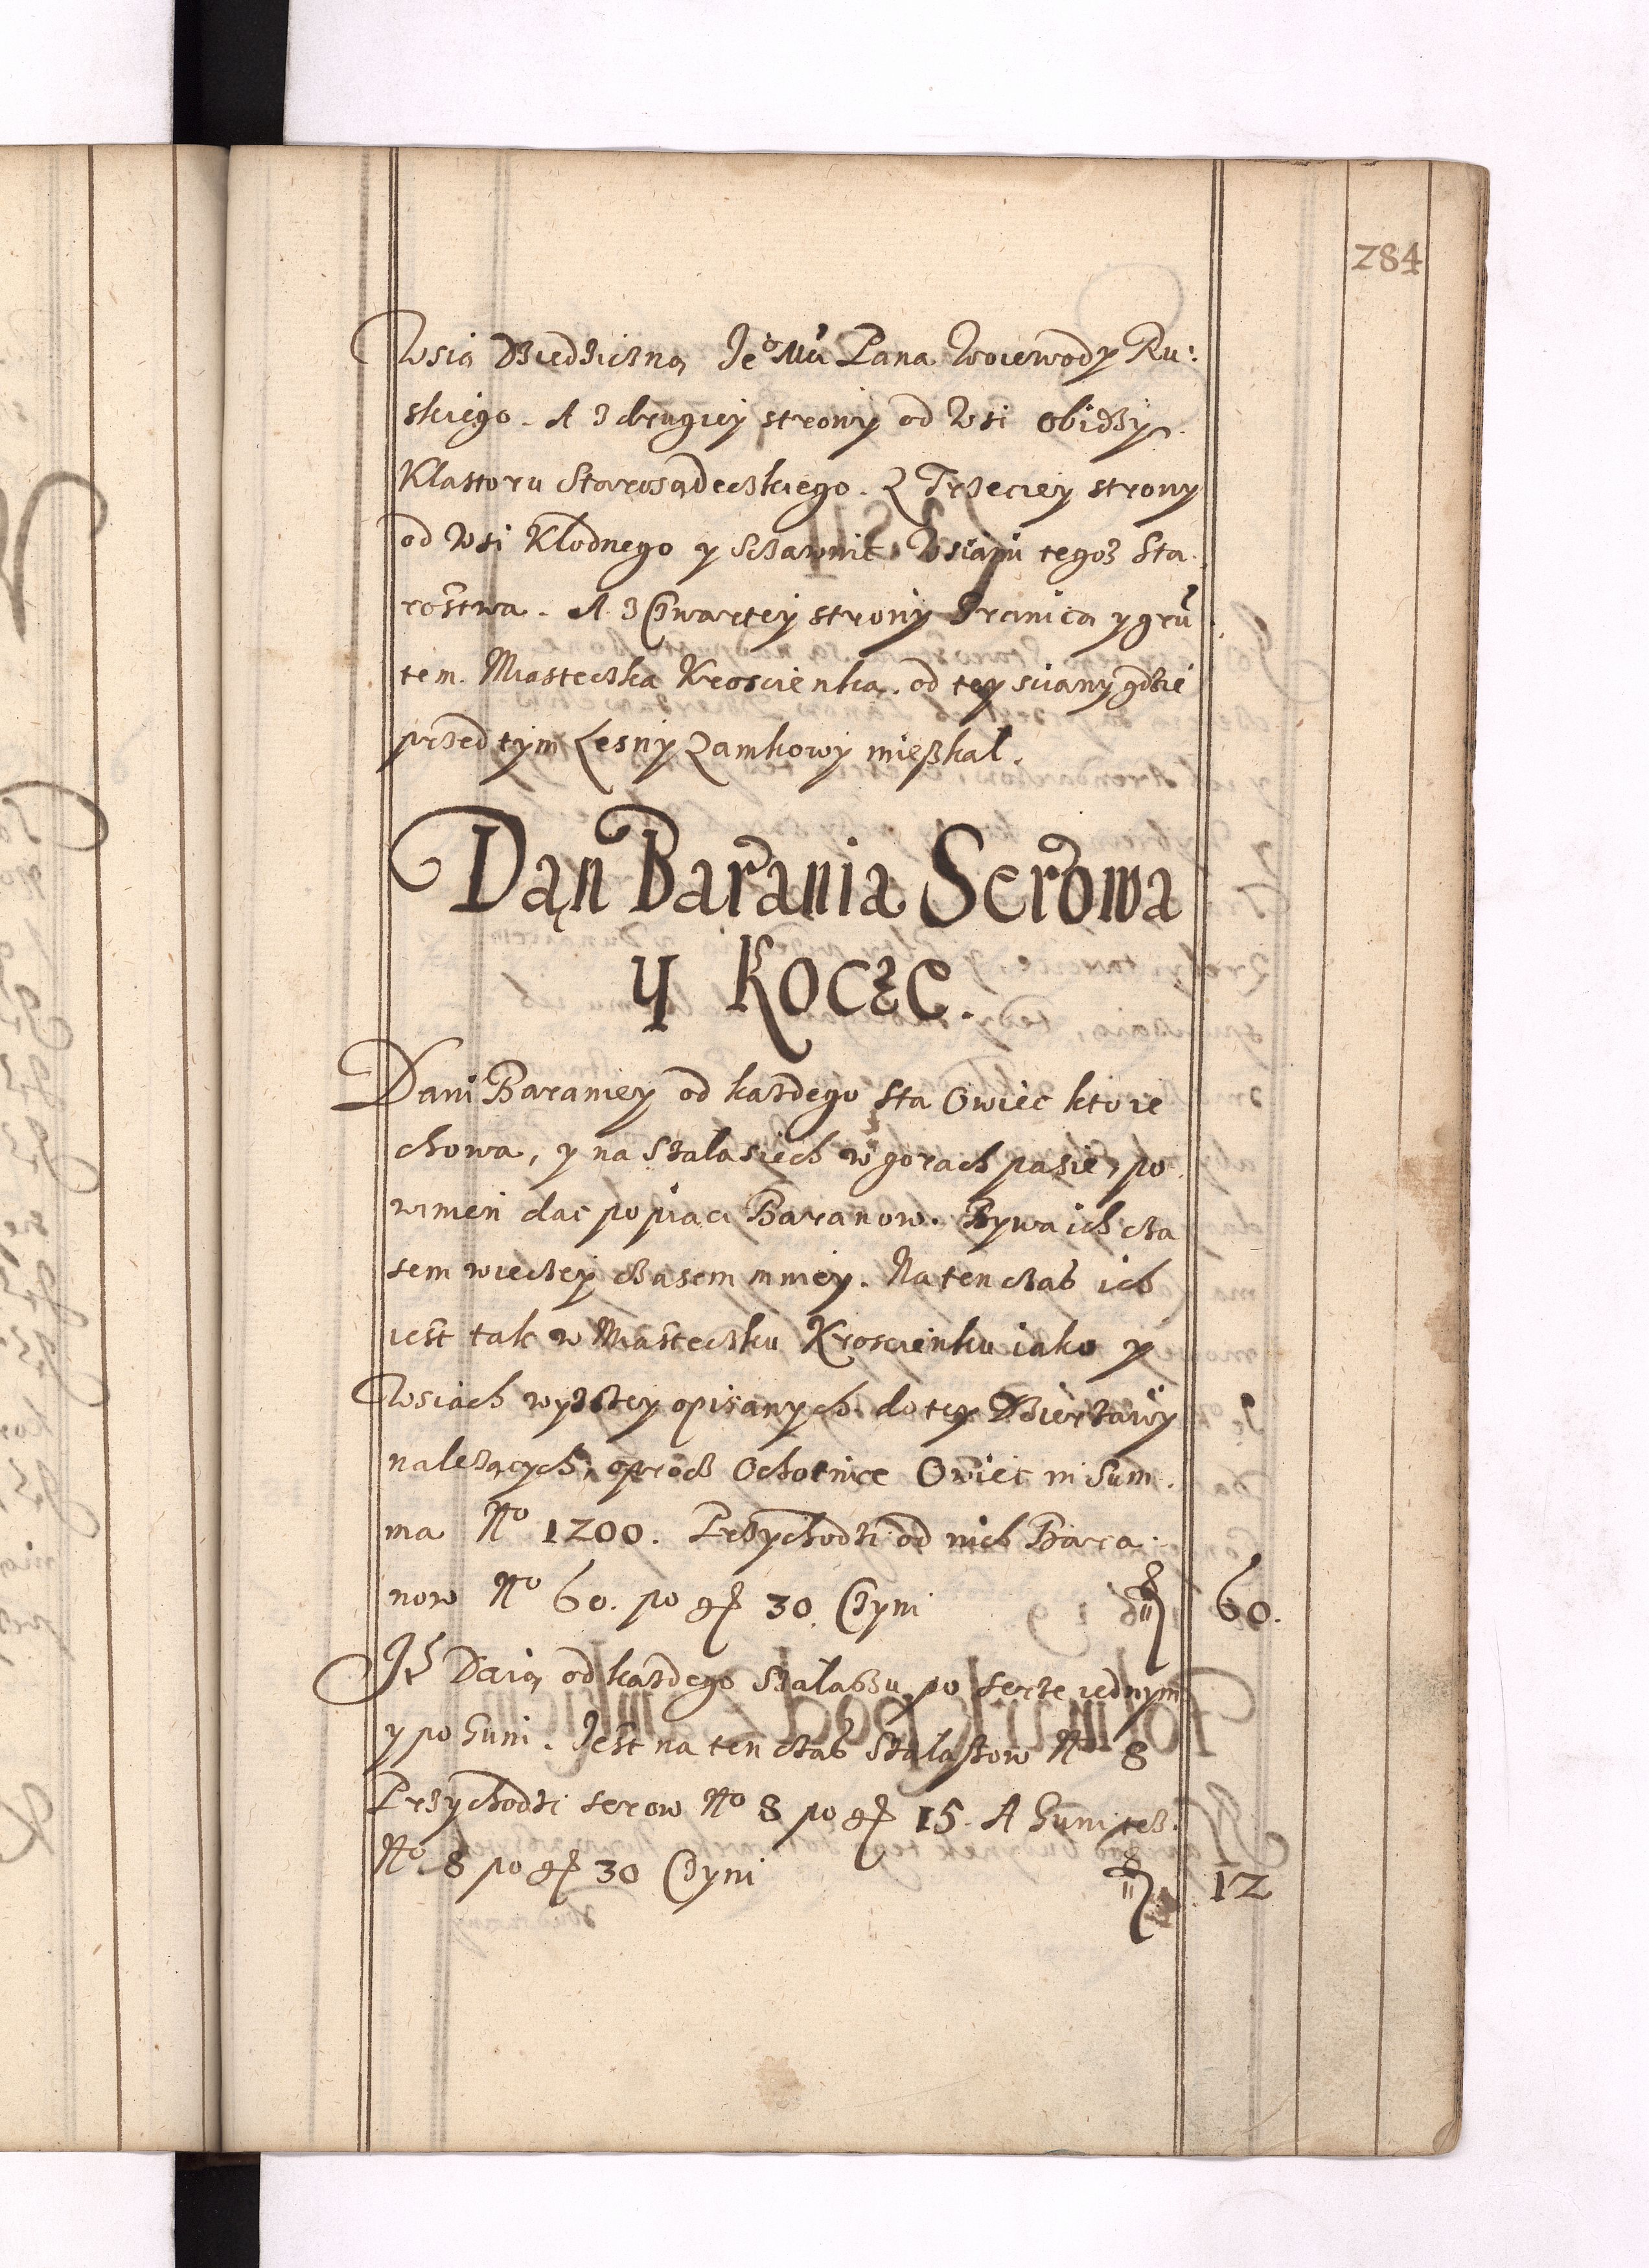 284
Wsią Dziedziczną Jeº Mći Pana Woiewody Ru:
skiego. A z drugiey strony od Wsi Obidzy
Klasztoru Starosądeczkiego. Z Trzeciey strony
od Wsi Kłodnego y Sczawnic Wsiami tegoż Sta.
rostwa. A z Czwartey strony Granica y gru
tem. Miasteczka Kroscienka. od tey sciany gdzie
przed tym Lesny Zamkowy mieszkał.
Dąn Barania Serowa
y Kocze.
Dani Baraniey od każdego sta Owiec ktore
chowa, y na Szałasiech w gorach pasie, po
winien dac po piąci Baranow. Bywa ich cza
sem wieczey czasem mniey. Na ten czas ich
iest tak w Miasteczku Kroscienku iako y
Wsiach wyższey opisanych do tey Dzierzawy
należących, oprocz Ochotnice Owiec in Sum.
ma Nº 1200. Przychodzi od nich Bara.
now Nº 60. po gr 30. Czyni 60.
It Daią od każdego Szałaszu po serze iednym
y po Guni. Jest na ten czas Szałaszow Nº 8
Przychodzi serow Nº 8 po gr 15. A Guni tez.
Nº 8 po gr 30 Czyni 12